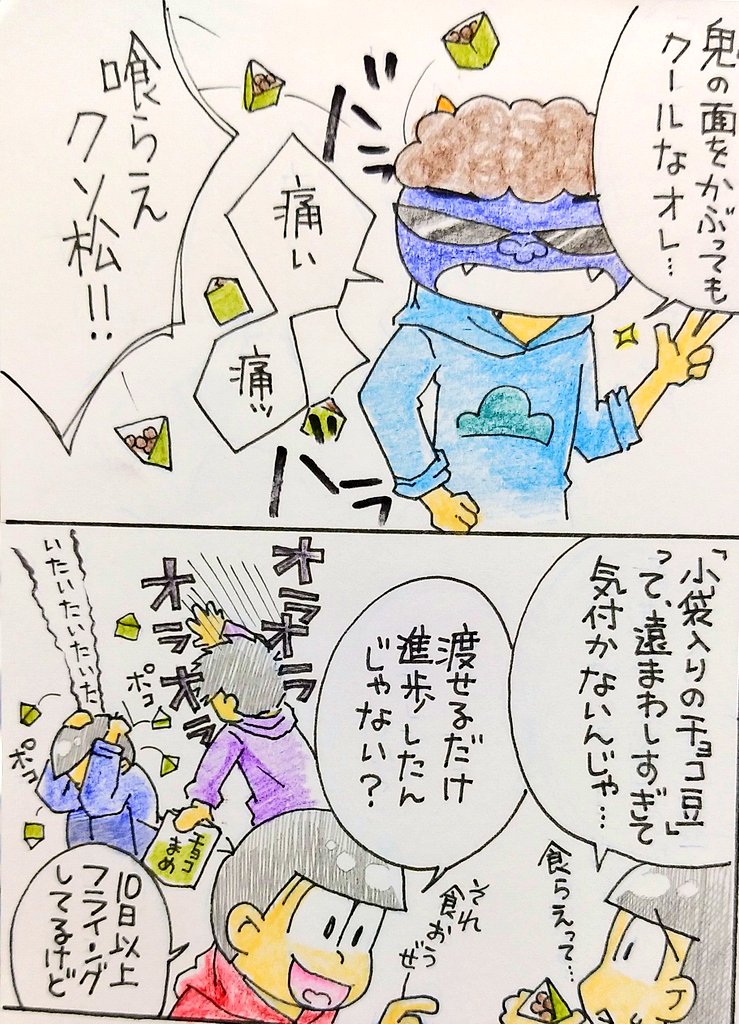 鬼の面をかぶっても
クールなオレ…
バシ
痛い
痛ッ
喰らえ
クソ松!!
バラ
「小袋入りのチョコ豆」
って、遠まわしすぎて
気付かないんじゃ…
渡せるだけ
進歩したん
じゃない?
オラオラ
オラオラ
いたいたいたいた
ポコ
ポコ
チョコ
まめ
食らえって…
それ
食おうぜー
10日以上
フライング
してるけど